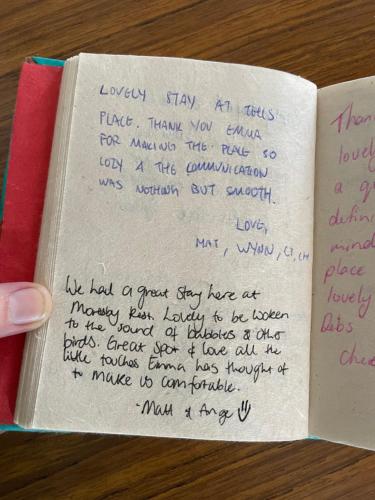 LOVELY STAY AT TEES
PLACE. THANK YOU EMMA
FOR MAKING THE PLACE SO
COZY & THE COMMUNICATION
WAS NOTHING BUT SMOOTH.
LOVE,
MAT, WYNN,
We had a great stay here at
Moresby Rest. Lovely to be woken
to the sound of babbles & other
birds. Great spot & love all the
little touches Emma has thought of
to make us comfortable.
- Matt & Ange
Than
lovely
a g
defini
mind
place
lovely
Debs
che